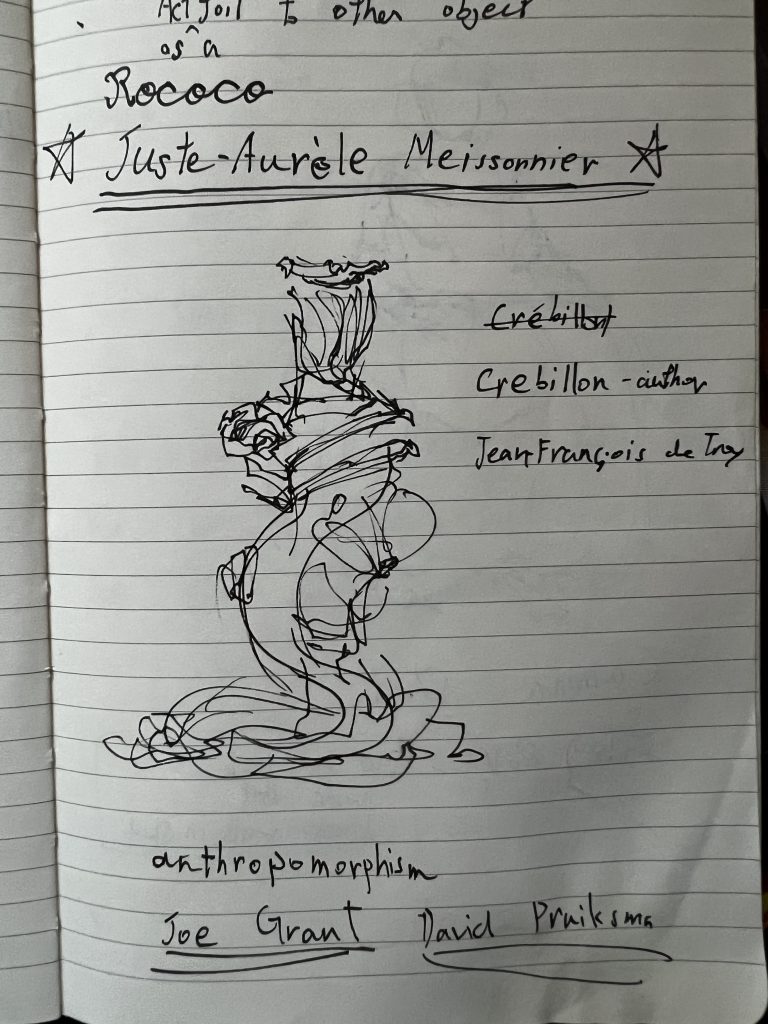 Act foil to other object
as a
Rococo
Juste-Aurèle Meissonnier
Crébillont
Crebillon - author
Jean François de Troy
anthropomorphism
Joe Grant David Pruiksma